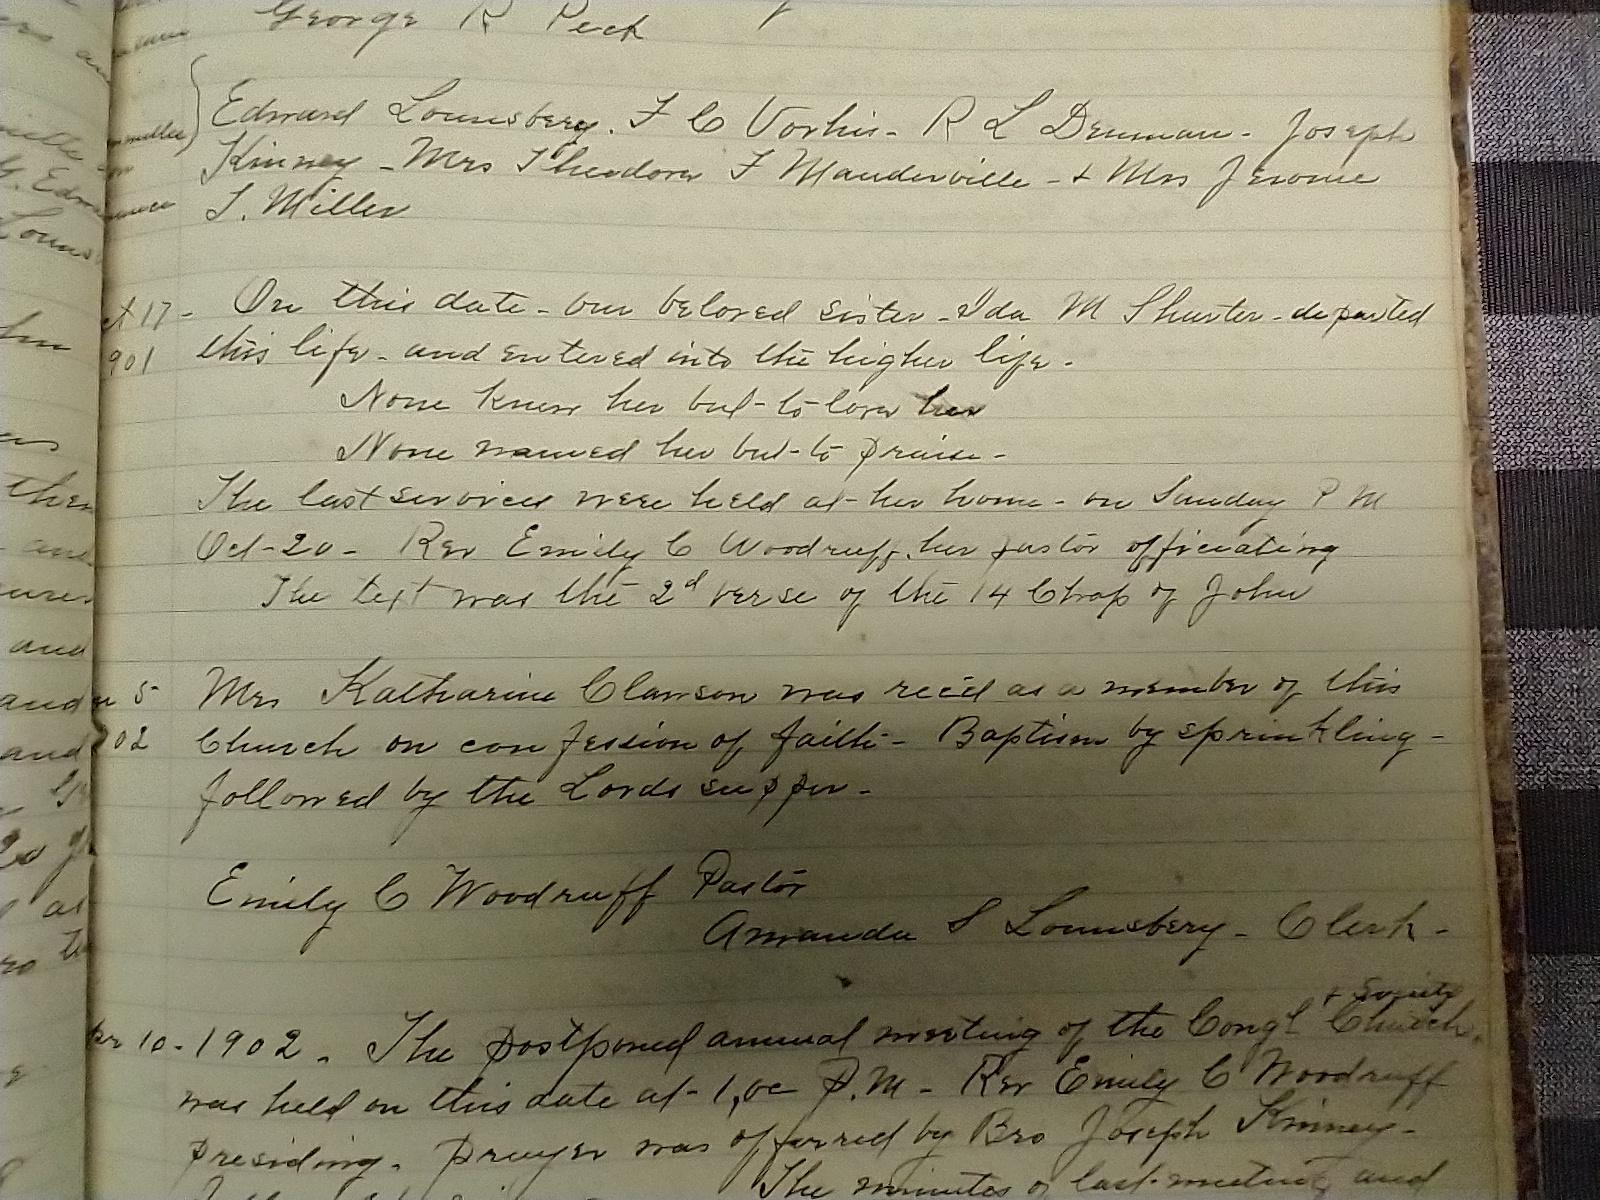 George R Peck
Edward Lounsbery. F C Vorhis - R L Denman - Joseph
Kinney - Mrs Theodora F Manderville - + Mrs Jerome
S. Miller
ct 17 - On this date - our beloved sister - Ida M Shurter - departed
901 this life - and entered into the higher life.
None knew her but to love her
None named her but to praise -
The last services were held at her home - on Sunday P M
Oct - 20 - Rev Emily C Woodruff, her pastor officiating
The text was the 2d verse of the 14 Chap of John
5 Mrs Katharine Clawson was rec'd as a member of this
02 Church on confession of faith - Baptism by sprinkling -
followed by the Lords supper -
Emily C Woodruff Pastor
Amanda S Lounsbery - Clerk -
+ Society
10 - 1902 - The postponed annual meeting of the Congl Church
was held on this date at 1,00 P.M - Rev Emily C Woodruff
presiding. prayer was offerred by Bro Joseph Kinney -
The minutes of last meeting and